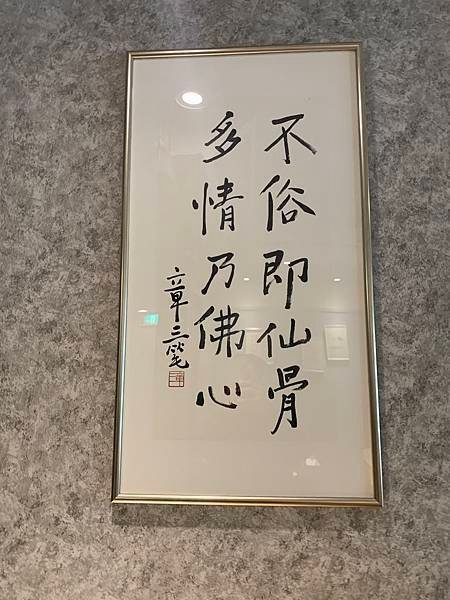 不俗即仙骨
多情乃佛心
章三